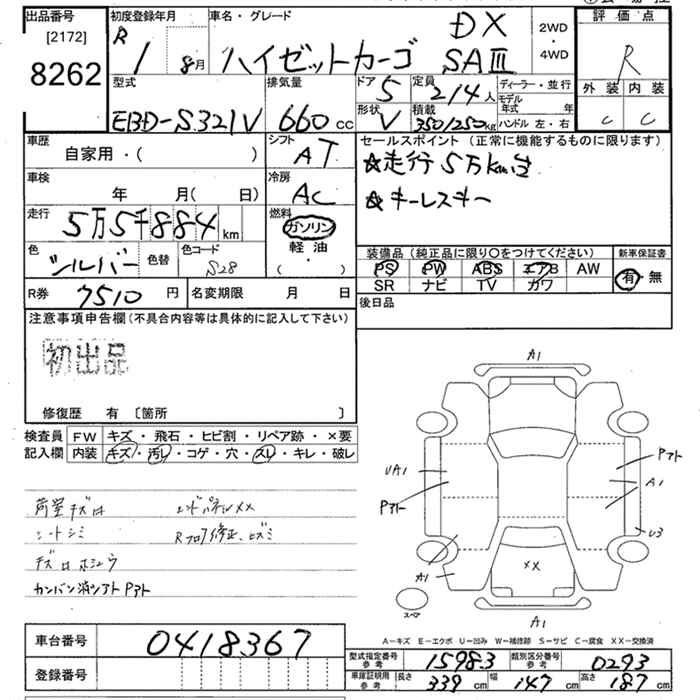 出品番号
[2172]
8262
初度登録年月
R 1 8月
車名・グレード
ハイゼットカーゴ
DX
SAⅢ
2WD
・
4WD
評価点
R
外装 内装
C C
型式
EBD-S321V
排気量
660 cc
ドア 5
形状 V
定員
2/4人
積載
350/250kg
ディーラー・並行
モデル年式 年
ハンドル 左・右
車歴
自家用・( )
シフト
AT
セールスポイント (正常に機能するものに限ります)
☆走行5万km台
☆キーレスキー
車検
年 月( 日)
冷房
AC
走行
5万5千884km
燃料
ガソリン
軽油
・( )
色
シルバー
色替
色コード
S28
装備品(純正品に限り○をつけてください)
PS PW ABS エアB AW
SR ナビ TV カワ
新車保証書
有・無
R券 7510 円
名変期限 月 日
後日品
注意事項申告欄(不具合内容等は具体的に記入して下さい)
初出品
修復歴 有 〔箇所 〕
検査員記入欄
FW キズ・飛石・ヒビ割・リペア跡・×要
内装 キズ・汚レ・コゲ・穴・スレ・キレ・破レ
荷室キズ凹
エンドパネルXX
シートシミ
Rフロア修正、ヒズミ
キズ凹ホシュウ
カンバン消シアト Pアト
A1
UA1
Pアト
Pアト
A1
U3
A1
XX
スペア
A1
A-キズ E-エクボ U-凹み W-補修跡 S-サビ C-腐食 XX-交換済
車台番号 0418367
登録番号
型式指定番号 参考 15983
類別区分番号 参考 0293
車庫証明用 参考 長さ 339 cm 幅 147 cm 高さ 187 cm